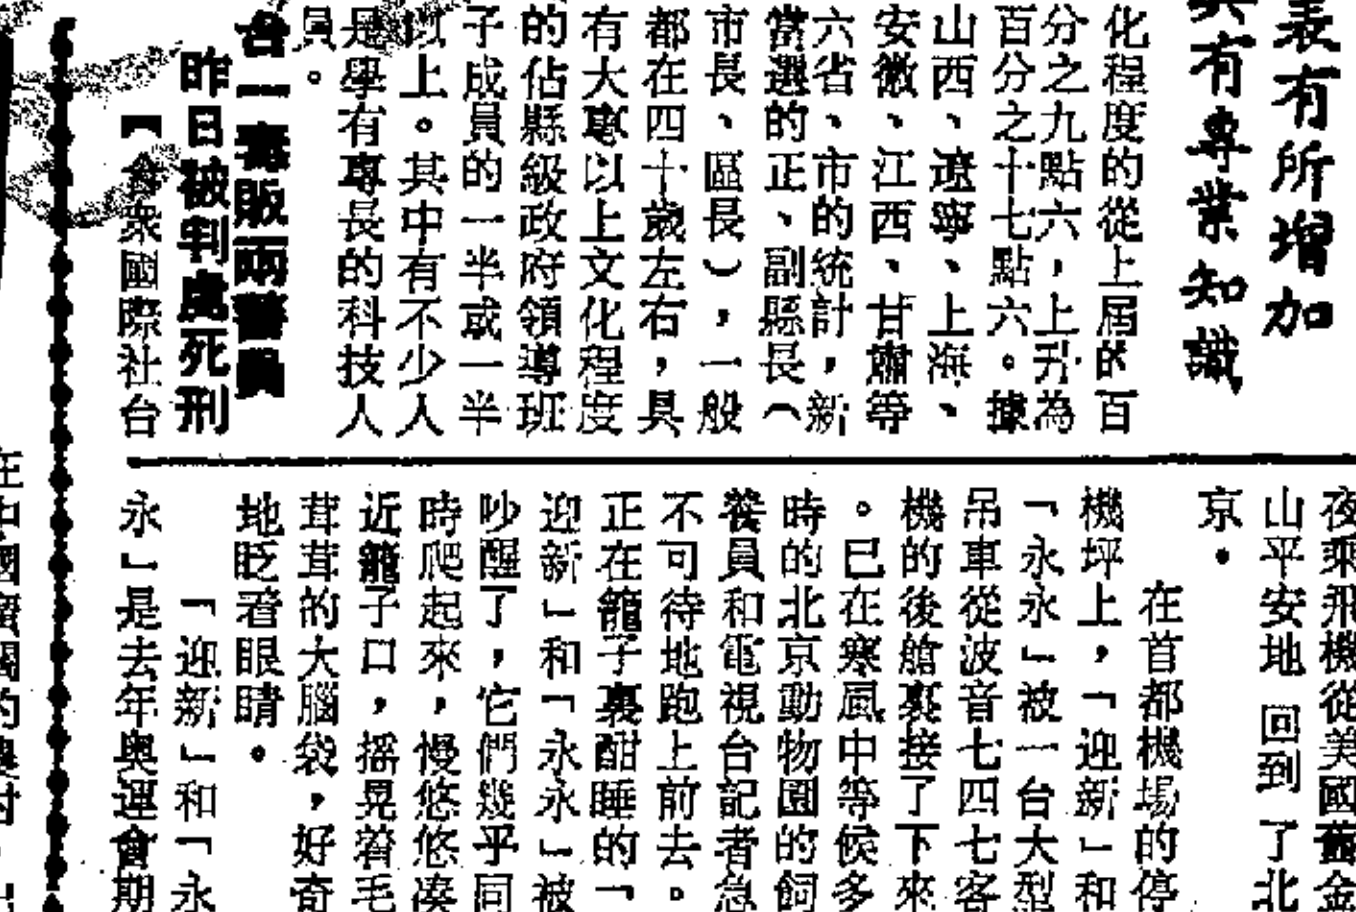 表有所增加
具有專業知識
化程度的從上屆的百
分之九點六，上升為
百分之十七點六。據
山西、遼寧、上海、
安徽、江西、甘肅等
六省、市的統計，新
當選的正、副縣長（
市長、區長），一般
都在四十歲左右，具
有大專以上文化程度
的佔縣級政府領導班
子成員的一半或一半
以上。其中有不少人
是學有專長的科技人
員。
台一毒販兩警員
昨日被判處死刑
【食衆國際社台
夜乘飛機從美國舊金
山平安地回到了北
京。
在首都機場的停
機坪上，「迎新」和
「永永」被一台大型
吊車從波音七四七客
機的後艙裏接了下來
。已在寒風中等候多
時的北京動物園的飼
養員和電視台記者急
不可待地跑上前去。
正在籠子裏酣睡的「
迎新」和「永永」被
吵醒了，它們幾乎同
時爬起來，慢悠悠湊
近籠子口，摇晃着毛
茸茸的大腦袋，好奇
地眨着眼睛。
「迎新」和「永
永」是去年奧運會期